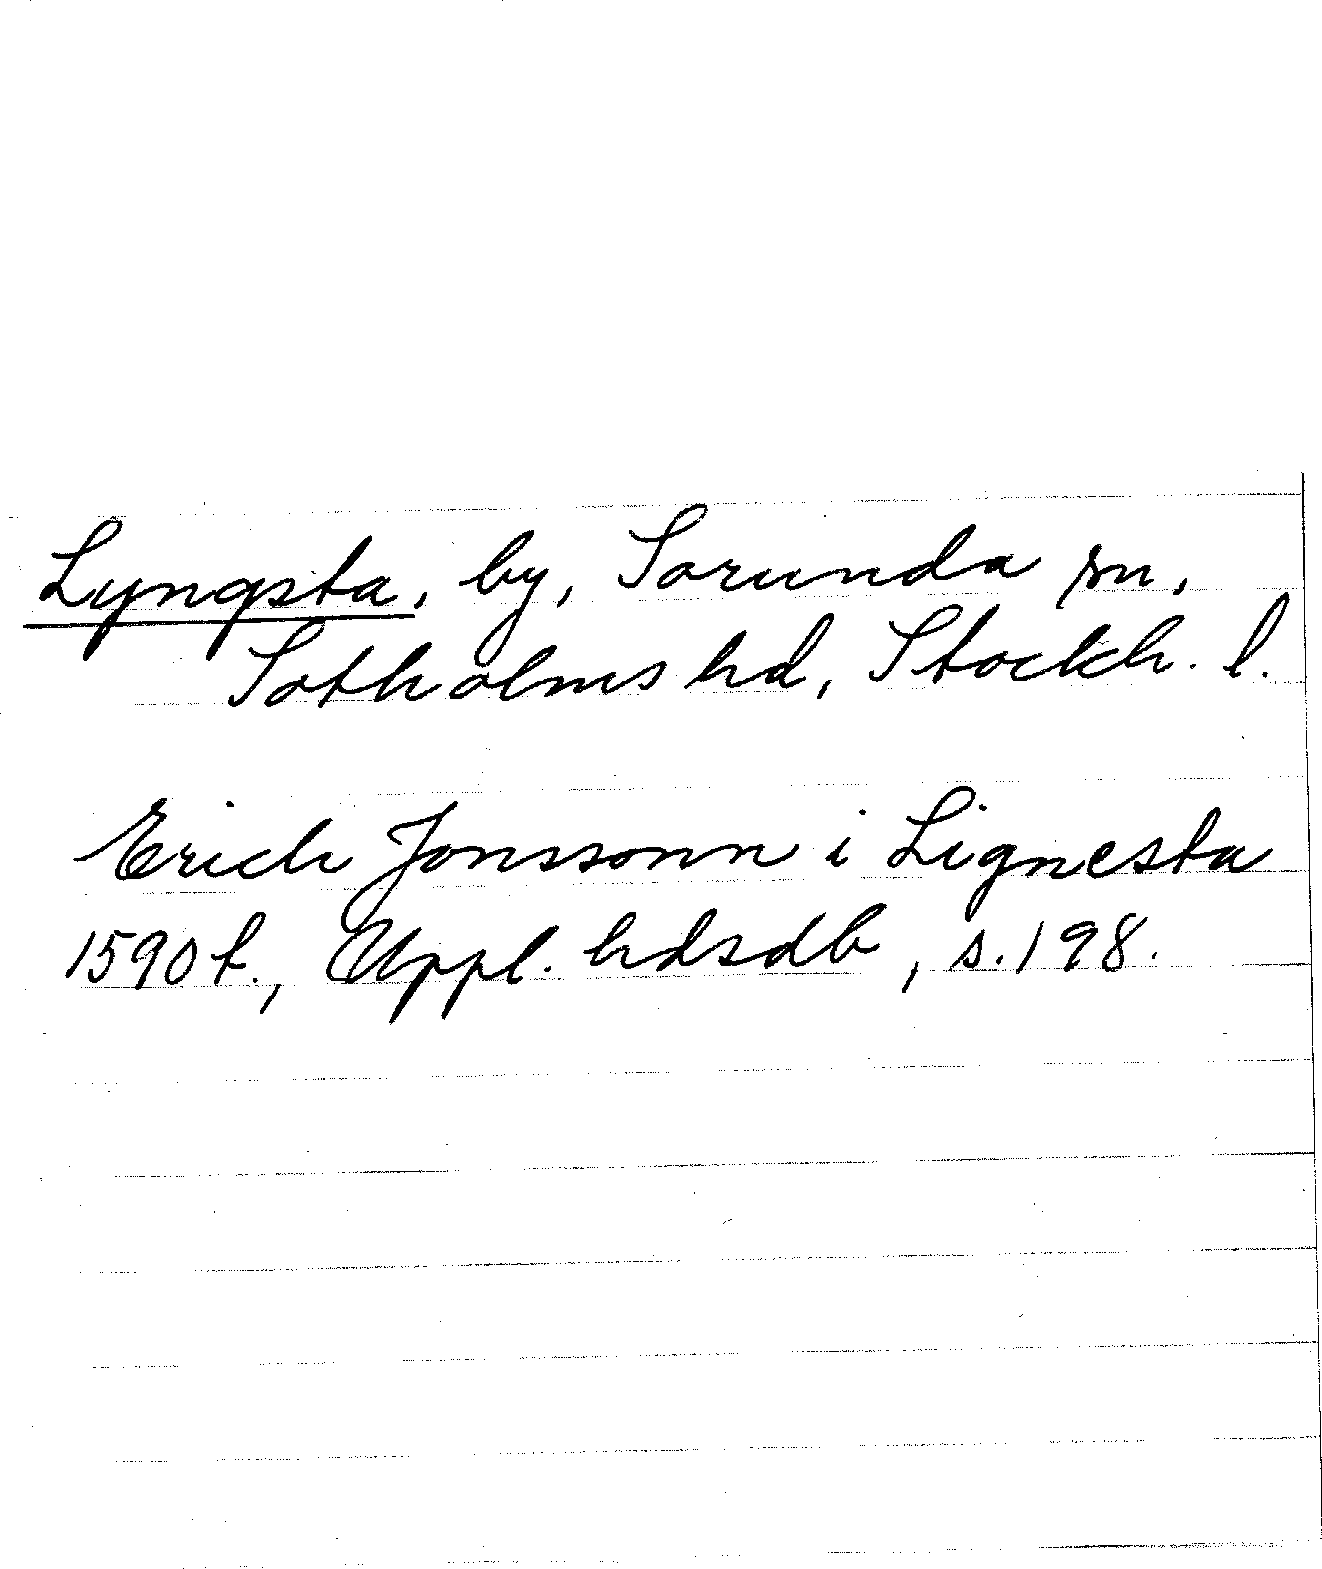 Lyngsta, by, Sorunda sn,
Sotholms hd, Stockh. l.
Erich Jonssonn i Lignesta
1590 t., Uppl. hdsdb, s. 198.